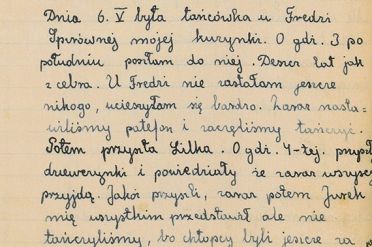 Dnia 6. V była tańcówka u Fredzi
Spirównej mojej kuzynki. O gdz. 3 po
południu poszłam do niej. Deszcz lał jak
z cebra. U Fredzi nie zastałam jeszcze
nikogo, ucieszyłam się bardzo. Zaraz nasta=
wiliśmy patefon i zaczęliśmy tańczyć.
Potem przyszła Lilka. O gdz. 4-tej
dziewczynki i powiedziały że zaraz wszyscy
przyjdą. Jakoż przyszli, zaraz potem Jurek
mię wszystkim przedstawił ale nie
tańczyliśmy, bo chłopcy byli jeszcze za